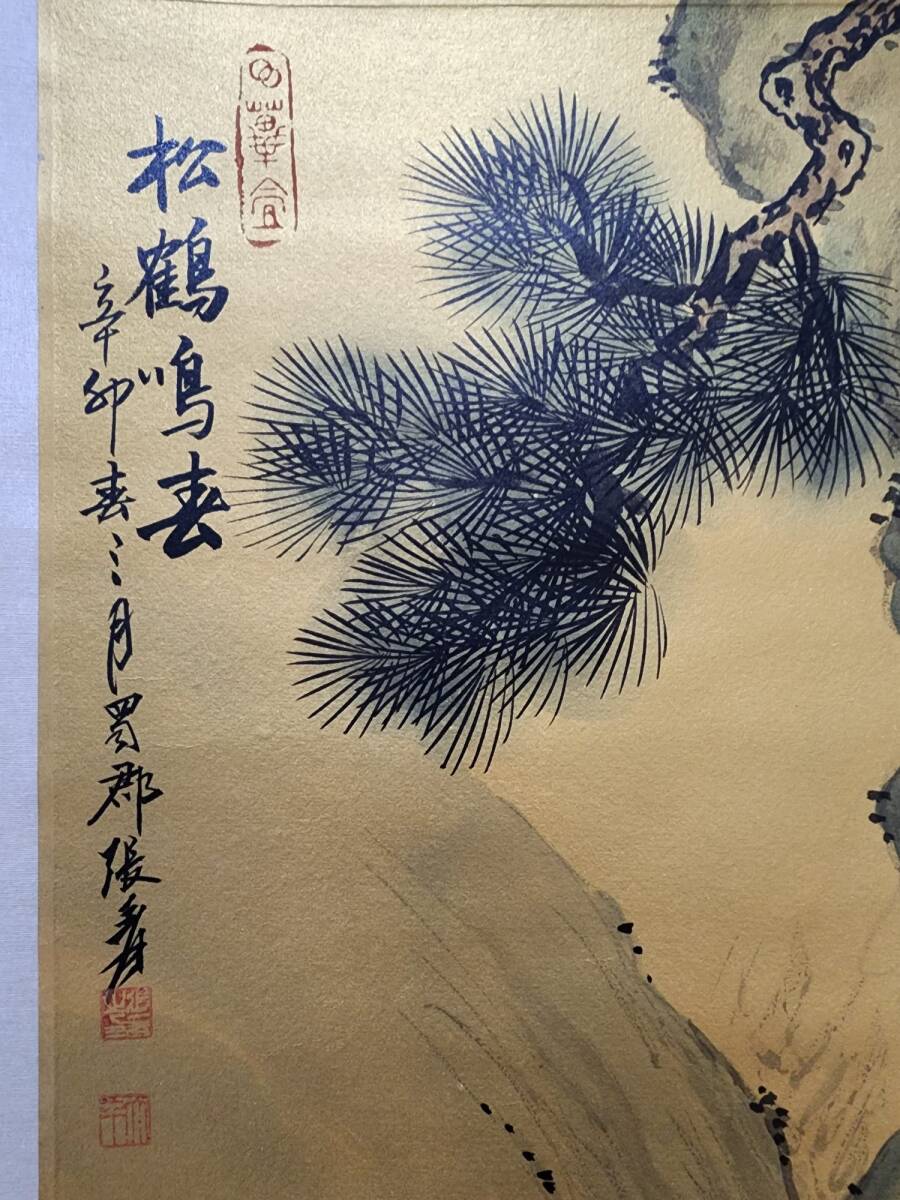 松鶴鳴春
辛卯春三月蜀郡張爰